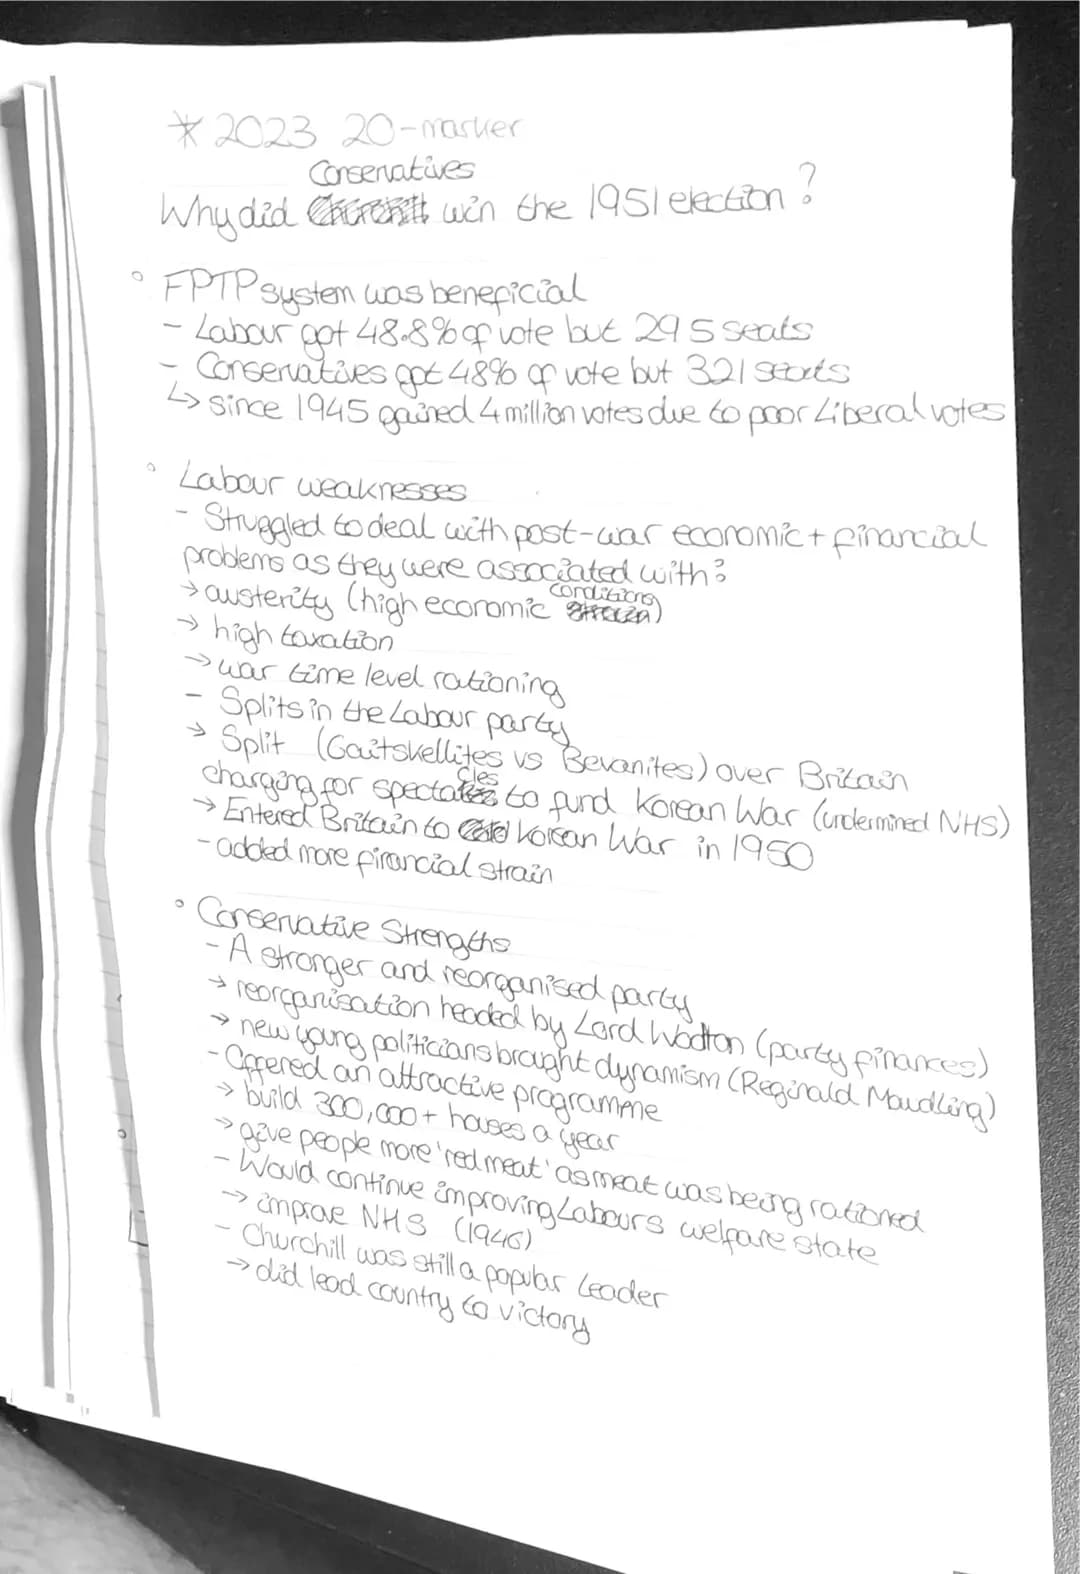 * 2023 20-marker
Conservatives
Why did win the 1951 election?
◦ FPTP system was beneficial
- Labour got 48.8% of vote but 295 seats
- Conservatives got 48% of vote but 321 seats
↳ since 1945 gained 4 million votes due to poor Liberal votes
◦ Labour weaknesses
- Struggled to deal with post-war economic + financial
problems as they were associated with:
conditions
→ austerity (high economic )
→ high taxation
→ war time level rationing
- Splits in the Labour party
→ Split (Gaitskellites vs Bevanites) over Britain
cles
charging for specta to fund Korean War (undermined NHS)
→ Entered Britain to Korean War in 1950
- added more financial strain
◦ Conservative Strengths
- A stronger and reorganised party
→ reorganisation headed by Lord Woolton (party finances)
→ new young politicians brought dynamism (Reginald Maudling)
- Offered an attractive programme
→ build 300,000+ houses a year
→ give people more 'red meat' as meat was being rationed
- Would continue improving Labours welfare state
→ improve NHS (1946)
- Churchill was still a popular leader
→ did lead country to victory